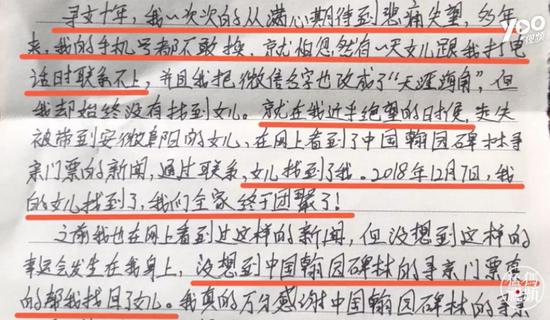 寻女十年,我一次次的从满心期待到悲痛失望,多年
来,我的手机号都不敢换,就怕忽然有一天女儿跟我打电
话时联系不上,并且我把微信名字也改成了“天涯海角”,但
我却始终没有找到女儿。就在我近乎绝望的时候,走失
被带到安微阜阳的女儿,在网上看到了中国翰园碑林寻
亲门票的新闻,通过联系,女儿找到了我。2018年12月7日,我
的女儿找到了,我们全家终于团聚了!
之前我也在网上看到过这样的新闻,但没想到这样的
幸运会发生在我身上,没想到中国翰园碑林的寻亲门票真
的帮我找回了女儿。我真的万分感谢中国翰园碑林的寻亲